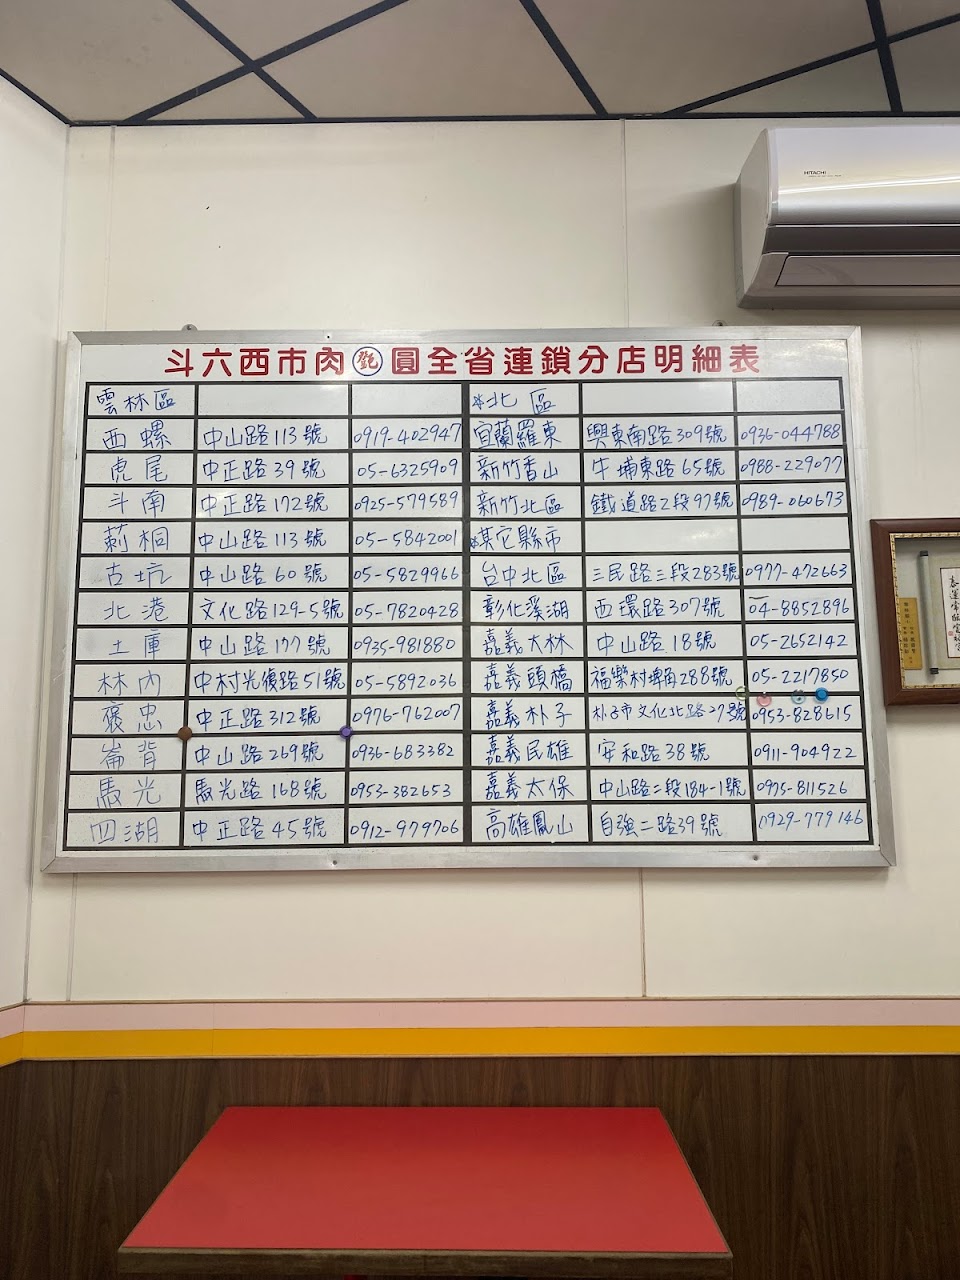 HITACHI
斗六西市肉圓全省連鎖分店明細表
雲林區
西螺 中山路113號 0919-402947
虎尾 中正路39號 05-6325909
斗南 中正路172號 0925-579589
莿桐 中山路113號 05-5842001
古坑 中山路60號 05-5829966
北港 文化路129-5號 05-7820428
土庫 中山路177號 0935-981880
林內 中村光復路51號 05-5892036
褒忠 中正路312號 0976-762007
崙背 中山路269號 0936-683382
馬光 馬光路168號 0953-382653
四湖 中正路45號 0912-979706
*北區
宜蘭羅東 興東南路309號 0936-044788
新竹香山 牛埔東路65號 0988-229077
新竹北區 鐵道路2段97號 0989-060673
*其它縣市
台中北區 三民路三段283號 0977-472663
彰化溪湖 西環路307號 04-8852896
嘉義大林 中山路18號 05-2652142
嘉義頭橋 福樂村埤角288號 05-2217850
嘉義朴子 朴子市文化北路27號 0953-828615
嘉義民雄 安和路38號 0911-904922
嘉義太保 中山路二段184-1號 0975-811526
高雄鳳山 自強二路39號 0929-779146